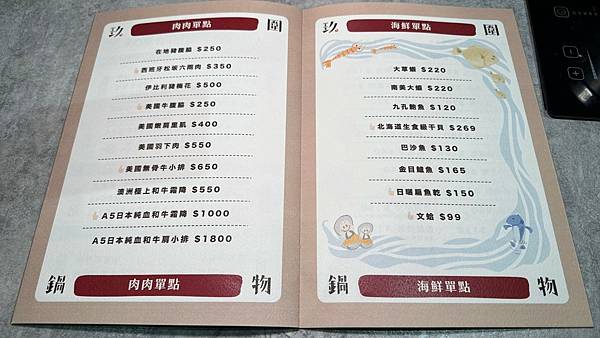 玖 肉肉單點 圍
在地豬腹脇 $250
西班牙松坂六兩肉 $350
伊比利豬梅花 $500
美國牛腹脇 $250
美國嫩肩里肌 $400
美國羽下肉 $550
美國無骨牛小排 $650
澳洲極上和牛霜降 $550
A5日本純血和牛霜降 $1000
A5日本純血和牛肩小排 $1800
鍋 肉肉單點 物
玖 海鮮單點 圍
大草蝦 $220
南美大蝦 $220
九孔鮑魚 $120
北海道生食級干貝 $269
巴沙魚 $130
金目鱸魚 $165
日曬扁魚乾 $150
文蛤 $99
鍋 海鮮單點 物